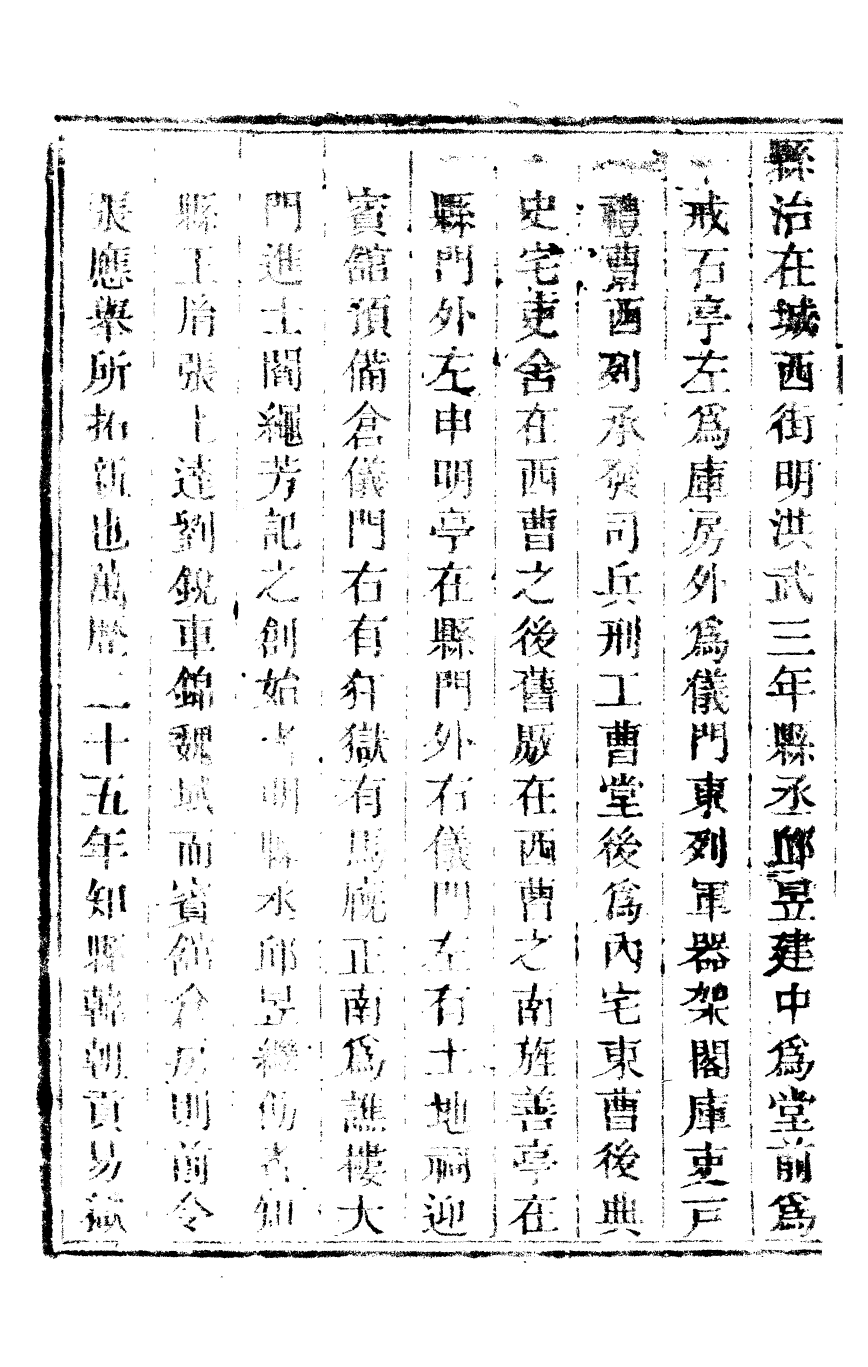 縣治在城西街明洪武三年縣丞邱昱建中為堂前為
戒石亭左為庫房外為儀門東列軍器架閣庫吏戶
禮曹西列承發司兵刑工曹堂後為內宅東曹後典
史宅吏舍在西曹之後舊廒在西曹之南旌善亭在
縣門外左申明亭在縣門外右儀門左有土地祠迎
賓館預備倉儀門右有犴獄有馬廄正南為譙樓大
門進士閻繩芳記之創始者明縣丞邱昱繼修者知
縣王階張上達劉銳車錦魏域而賓館倉房則前令
張應舉所拓新也萬曆二十五年知縣韓朝貢易獄